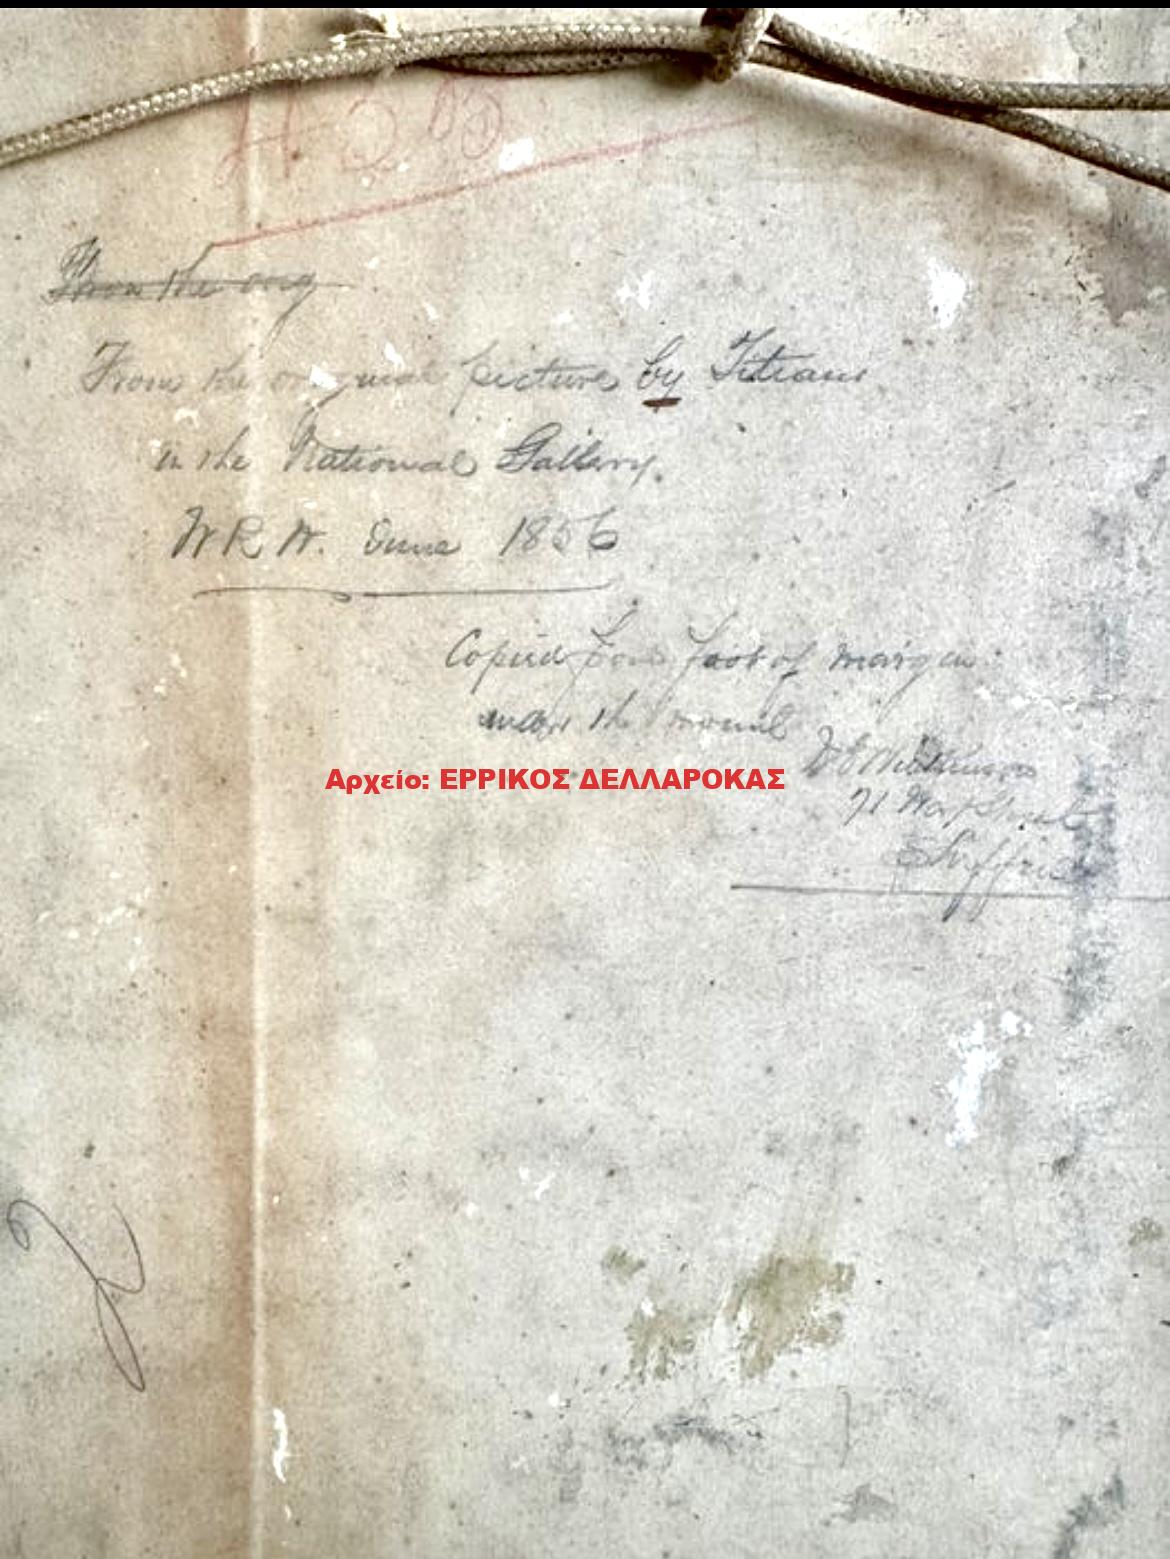 From the orig
From the original picture by Titian
in the National Gallery.
W R W. June 1856
Copied from foot of margin
under the mount
Αρχείο: ΕΡΡΙΚΟΣ ΔΕΛΛΑΡΟΚΑΣ
71